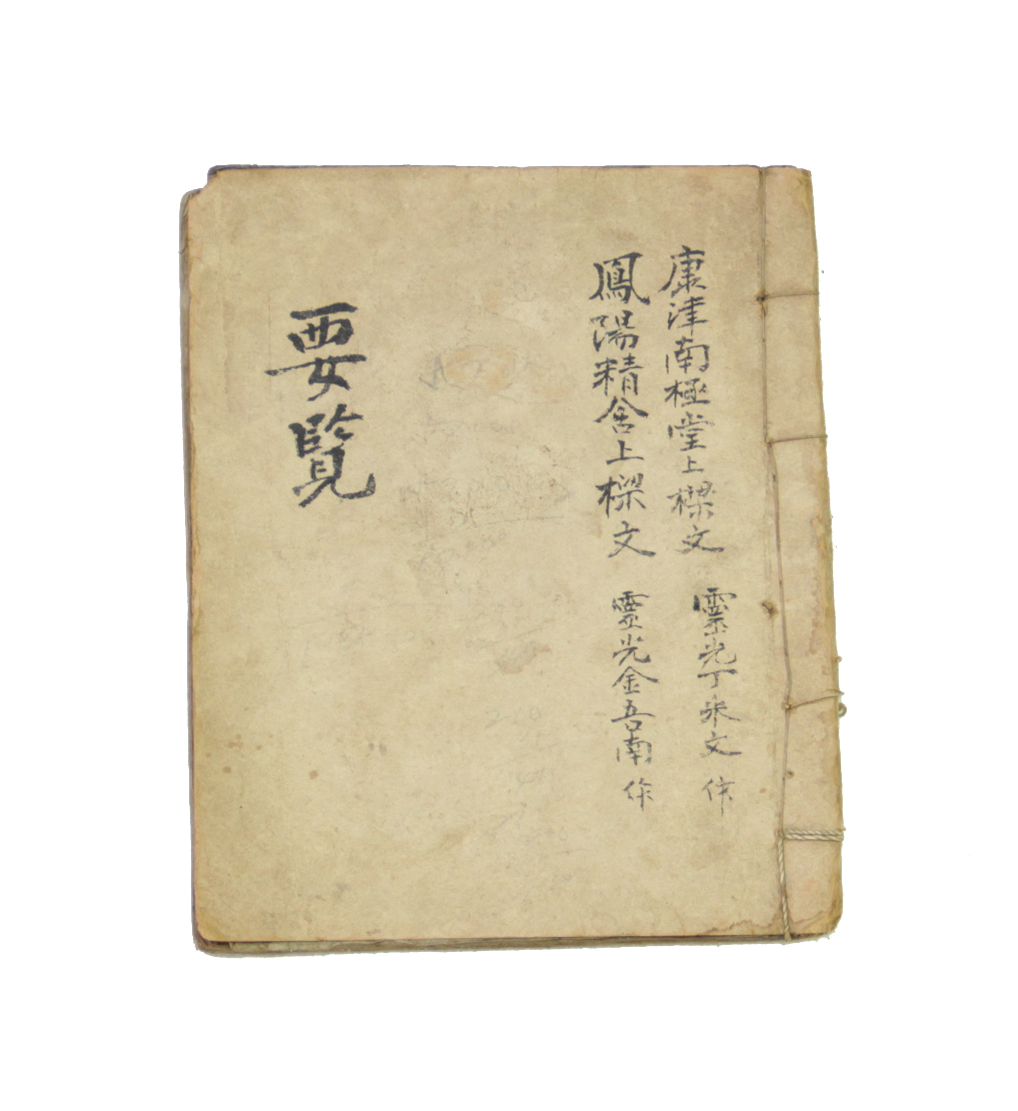 康津南極堂上樑文 靈光丁米文 作
鳳陽精舍上樑文 靈光金吾南 作
要覽